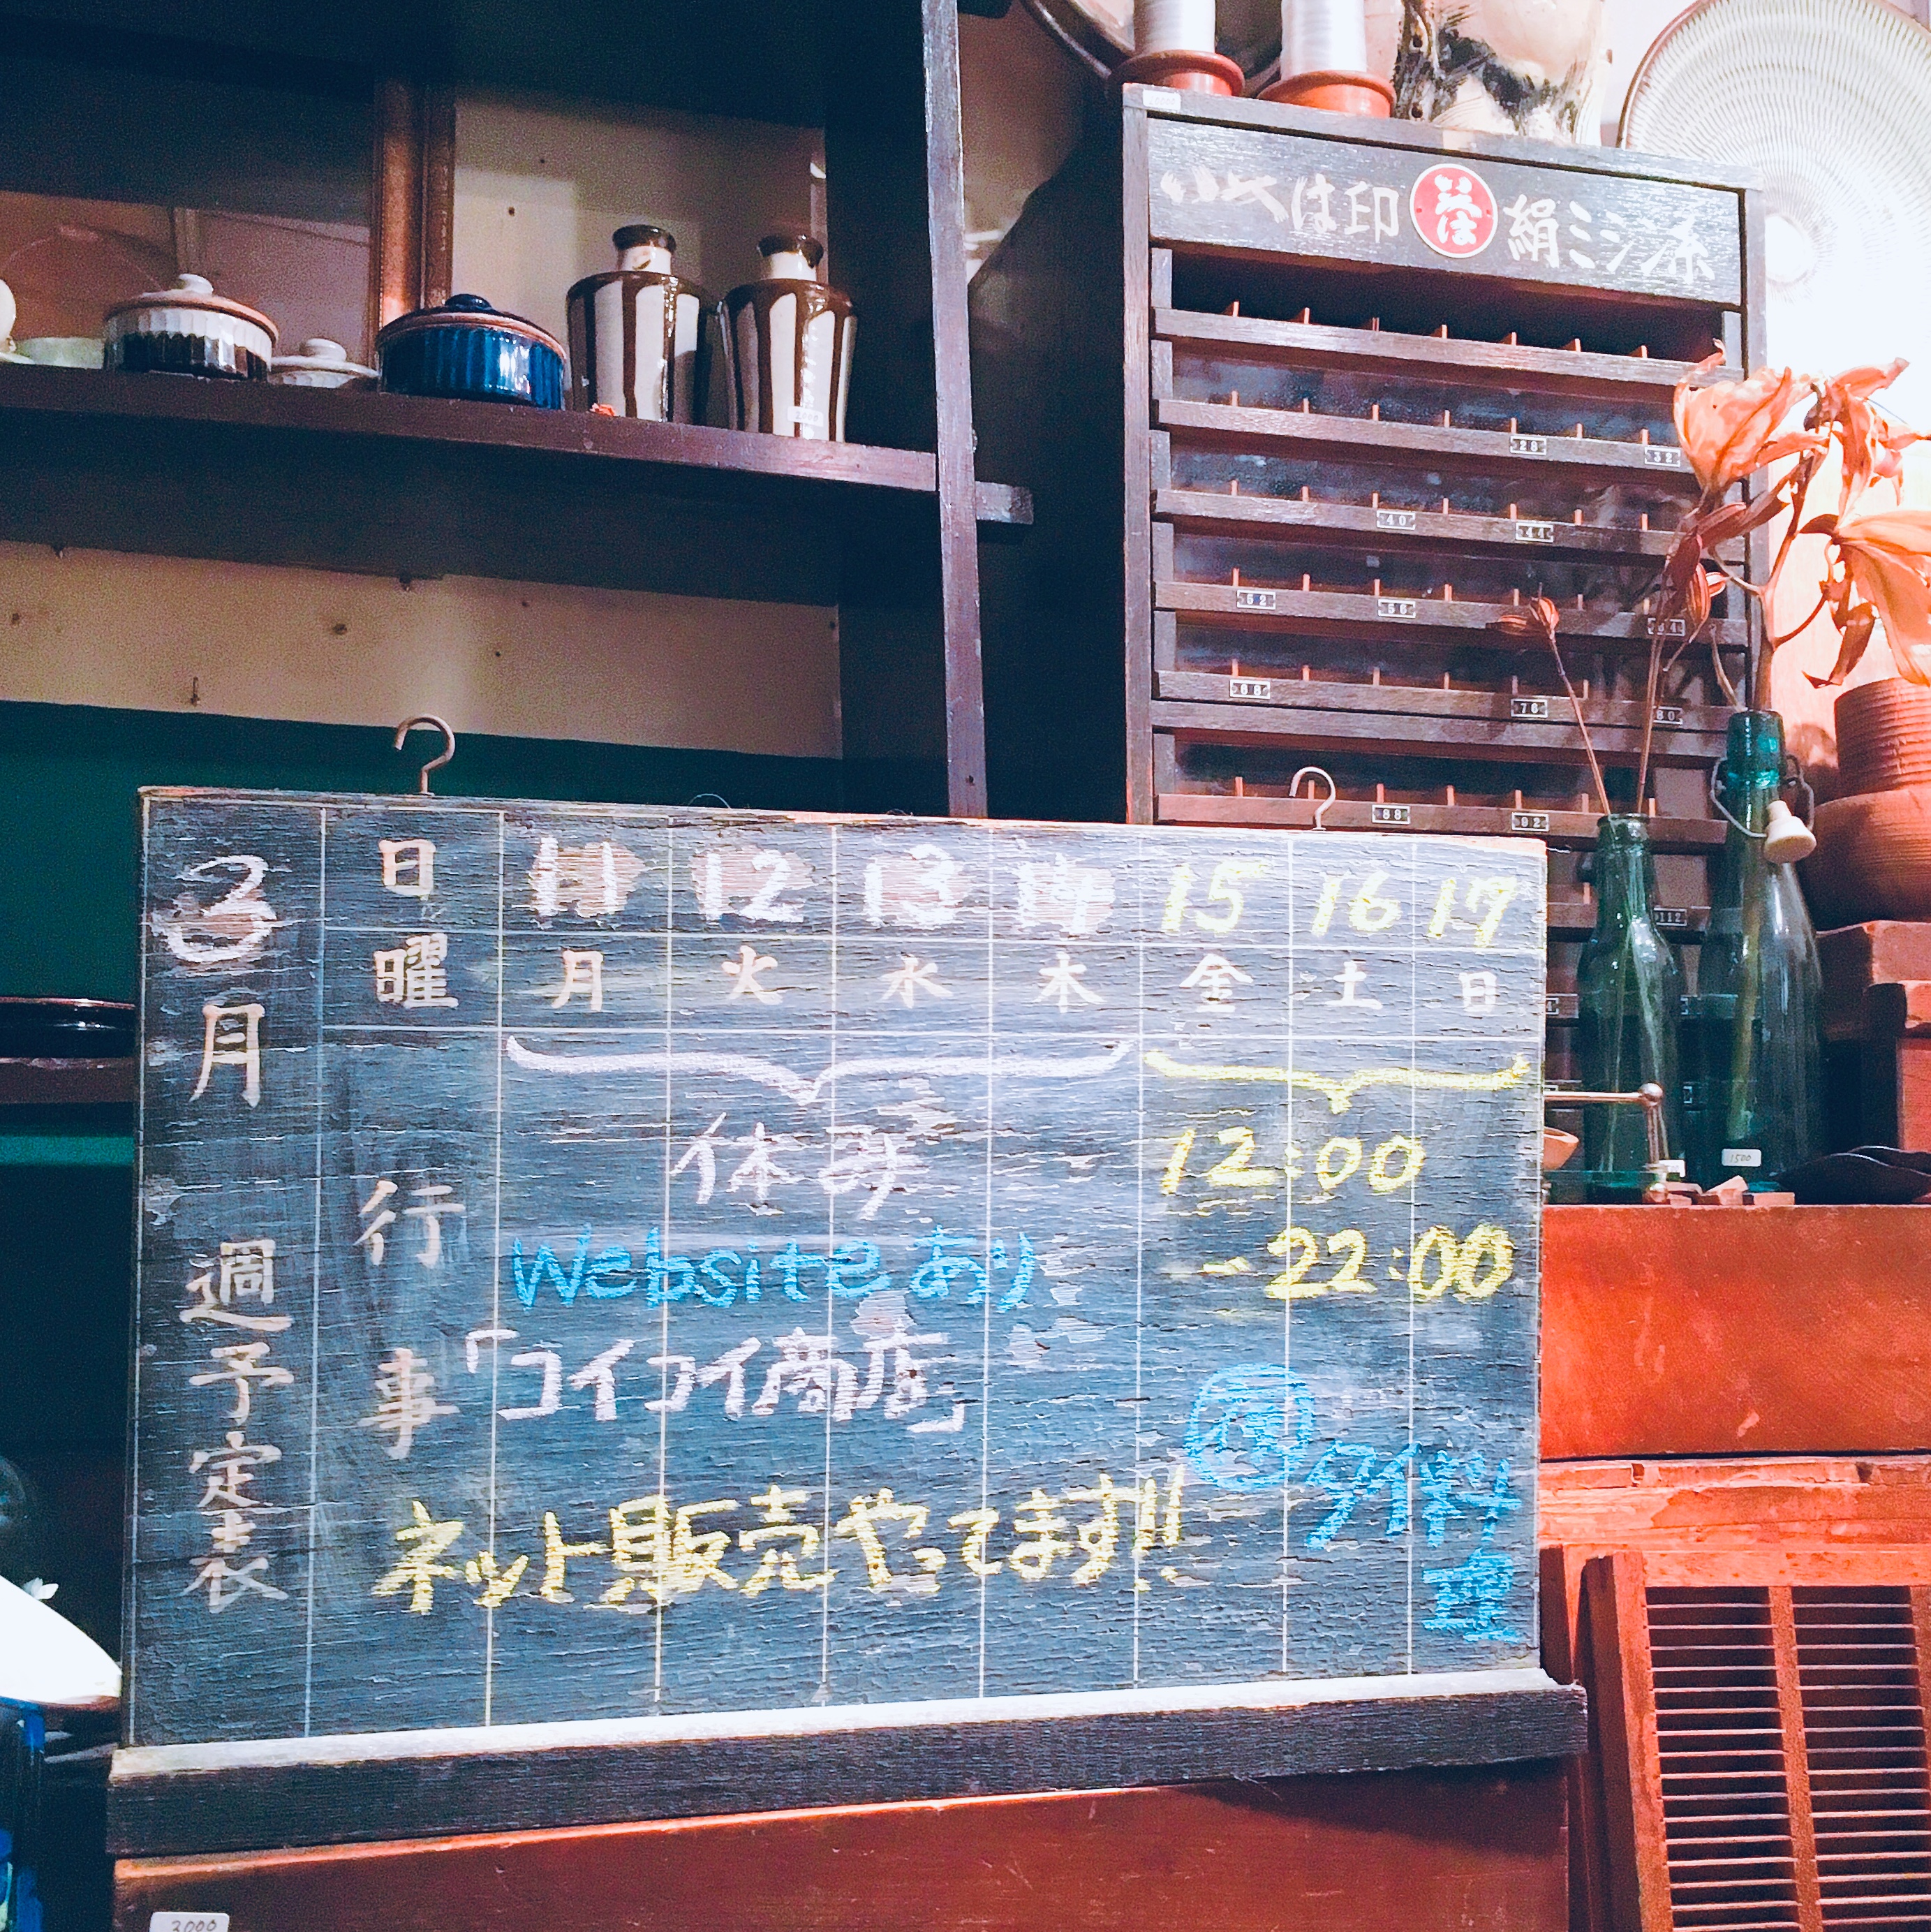 いろは印 いろは 絹ミシン糸
28 32
40 44
52 56
68 76 80
88 92
112
3月 週予定表
日 11 12 13 14 15 16 17
曜 月 火 水 木 金 土 日
行事
休み
Websiteあり
「コイコイ商店」
ネット販売やってます!!
12:00
~22:00
夜 タイ料理
1500
3000